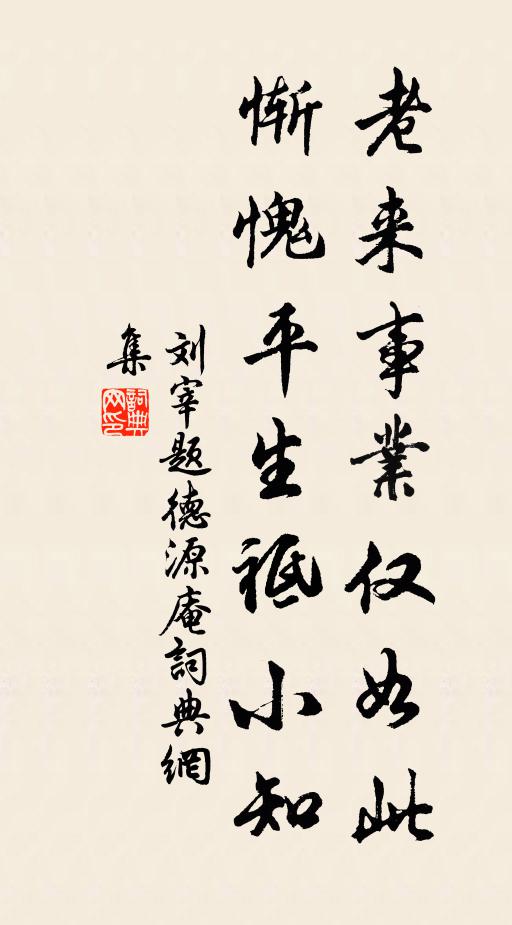 老来事業仅如此
慚愧平生祗小知
刘宰题德源庵詞典網
集
詞典
网印